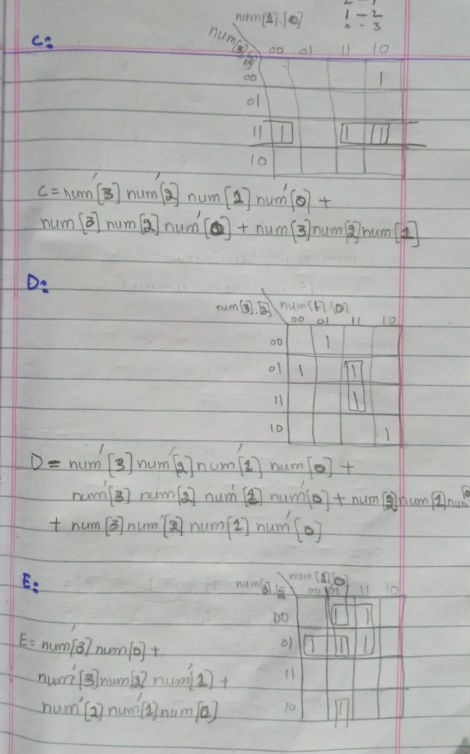 2 - 1
1 - 2
0 - 3
C:
num[1].[0]
num[3].[2]
00 01 11 10
00 1
01
11 1 1 1
10
C = num'[3] num'[2] num[1] num'[0] +
num[3] num[2] num'[0] + num[3] num[2] num[1]
D:
num[3].[2] num[1].[0]
00 01 11 10
00 1
01 1 1
11 1
10 1
D = num'[3] num'[2] num'[1] num[0] +
num'[3] num[2] num'[1] num'[0] + num[2] num[1] num[0]
+ num[3] num'[2] num[1] num'[0]
E:
num[3].[2] num[1].[0]
00 01 11 10
00 1 1
01 1 1 1
11
10 1
E = num'[3] num[0] +
num'[3] num[2] num'[1] +
num'[2] num'[1] num[0]